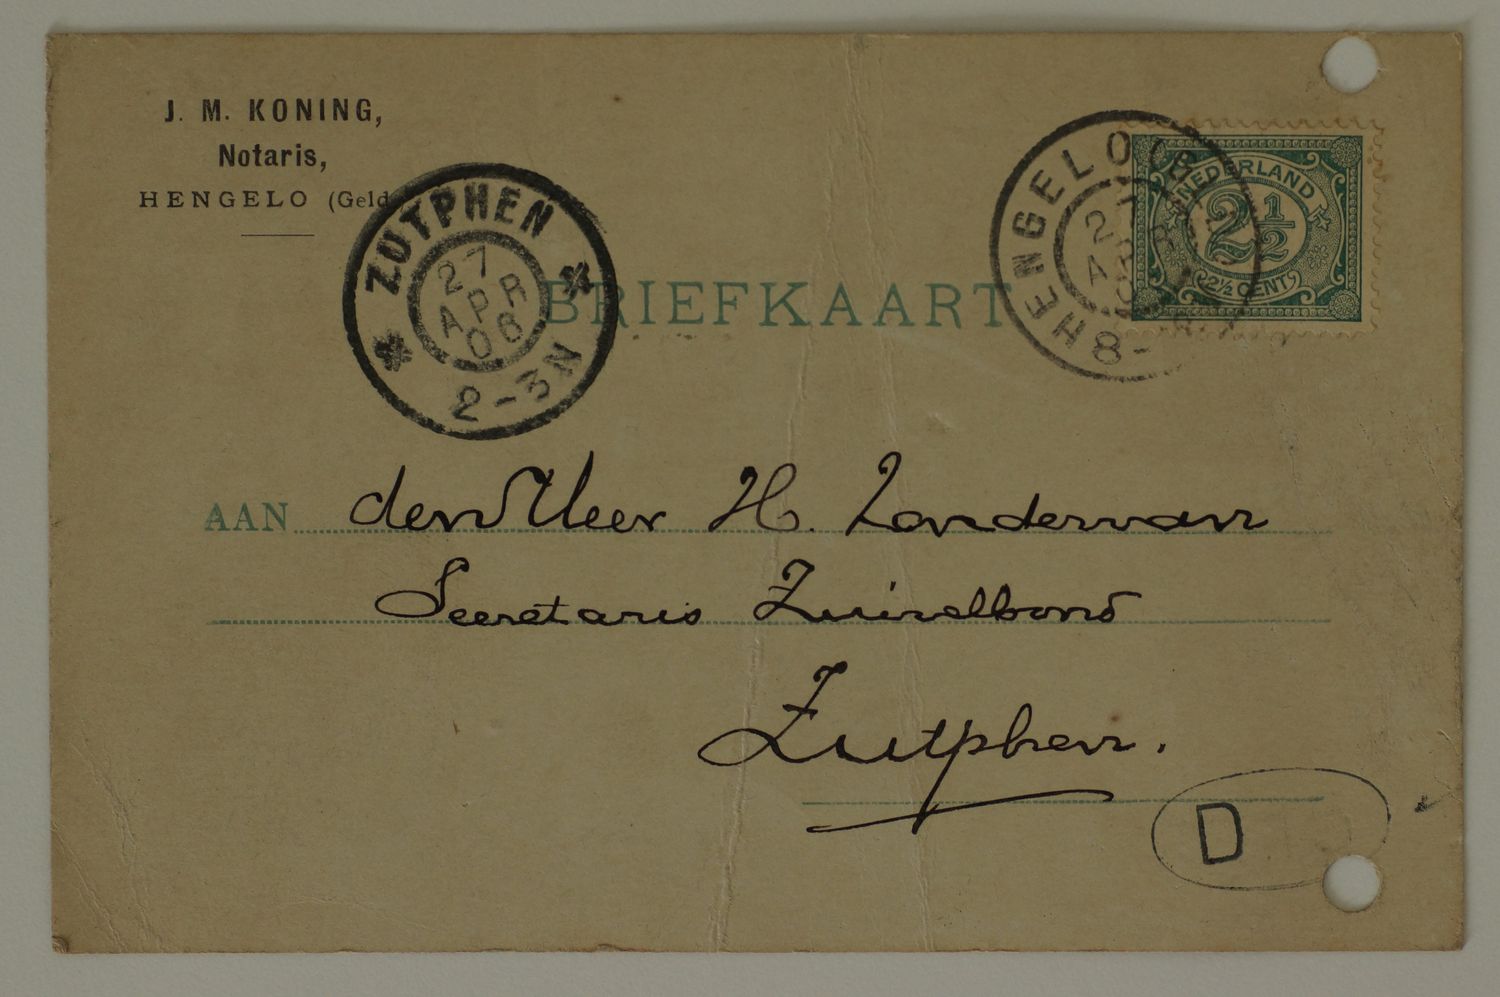 J. M. KONING,
Notaris,
HENGELO (Geld
ZUTPHEN
27
APR
06
2-3N
BRIEFKAART
HENGELO
27
APR
8-
NEDERLAND
2½
2½ CENT
AAN den Heer H. Zondervan
Secretaris Zuivelbond
Zutphen.
D